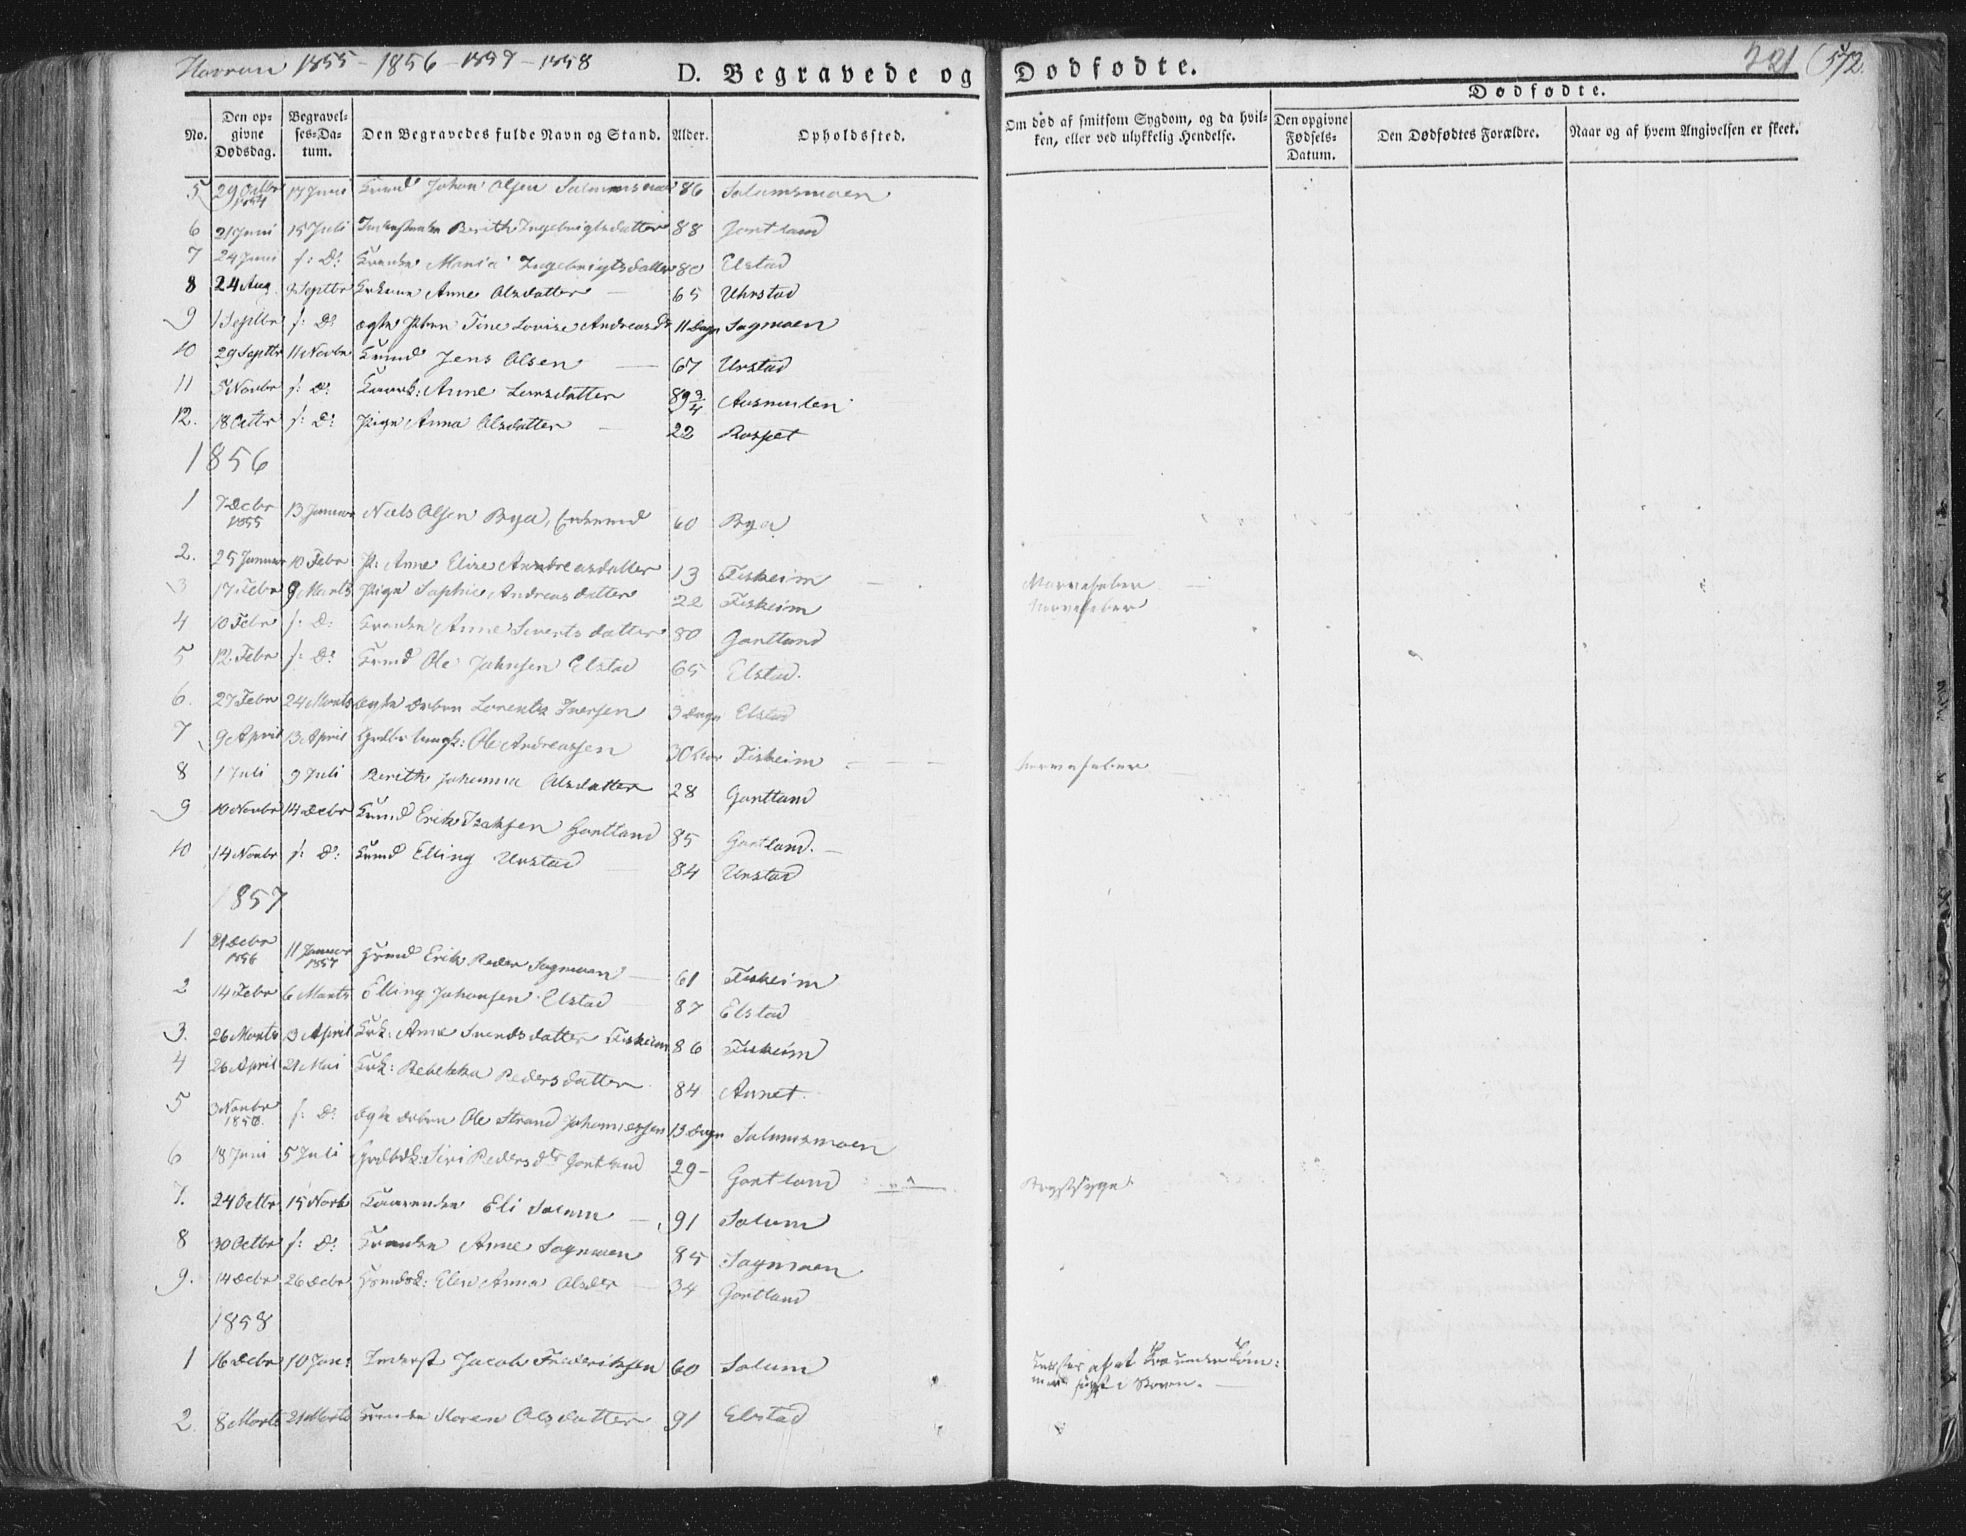 1855 - 1856 - 1857 - 1858
D. Begravede og Dødfødte.
321 572.
Dødfødte.
No. Den opgivne Dødsdag. Begravelses-Datum. Den Begravedes fulde Navn og Stand. Alder. Opholdssted. Om død af smitsom Sygdom, og da hvilken, eller ved ulykkelig Hendelse. Den opgivne Fødsels-Datum. Den Dødfødtes Forældre. Naar og af hvem Angivelsen er skeet.
5 29 Octbr 1854 17 Juni Johan Olsen 86 Salumsmoen
6 21 Juni 15 Juli Berith Ingebrigtsdatter 88 Gartland
7 24 Juni f: D: Maria Ingebrigtsdatter 80 Elstad
8 24 Aug. Septbr Anne Olsdatter 65 Uhrstad
9 1 Septbr f: D: Tine Lovise Andreasd 11 Dage Sagmoen
10 29 Septbr 11 Novbr Jens Olsen 67 Urstad
11 5 Novbr f: D: Anne Larsdatter 89 3/4 Aasmulen
12. 18 Octbr f: D: Pige Anna Olsdatter 22 Rosset
1856
1 7 Decbr 1855 13 Januar Niels Olsen Bya, 60 Bya
2. 25 Januar 10 Febr P: Anne Elise Andreasdatter 13 Fiskeim Nervefeber
3 17 Febr 9 Marts Pige Sophie Andreasdatter 22 Fiskeim Nervefeber
4 10 Febr f: D: Anne Sivertsdatter 80 Gartland
5 12 Febr f: D: Ole Johnsen Elstad 65 Elstad.
6. 27 Febr 24 Marts Lorents Iversen 3 Dage Elstad
7 9 April 13 April Ole Andreassen 30 Fiskeim Nervefeber
8 1 Juli 9 Juli Berith Johanna Olsdatter 28 Gartland
9 10 Novbr 14 Decbr Erik Isaksen Gartland 85 Gartland.
10 14 Novbr f: D: Elling Urstad 84 Urstad
1857
1 21 Decbr 1856 11 Januar 1857 Erik Peder Sagmoen 61 Fiskeim
2 14 Febr 6 Marts Elling Johansen Elstad 87 Elstad
3. 26 Marts 13 April Anne Svendsdatter Fiskeim 86 Fiskeim
4 26 April 21 Mai Rebekka Pedersdatter 84 Aunet.
5 3 Novbr 1856. f: D: Ole Strand Johannessen 13 Dage Salumsmoen
6 18 Juni 5 Juli Siri Pedersdtr Gartland 29 Gartland Brystsyge
7. 24 Octbr 15 Novb Eli Salum 91 Salum
8 30 Octbr f: D: Anne Sagmoen 85 Sagmoen
9. 14 Decbr 26 Decbr Elen Anna Olsdtr 34 Gartland
1858
1 16 Decbr 10 Jan: Inderst Jacob Frederiksen 60 Salum
af et
2. 8 Marts 21 Marts Maren Olsdatter 91 Elstad